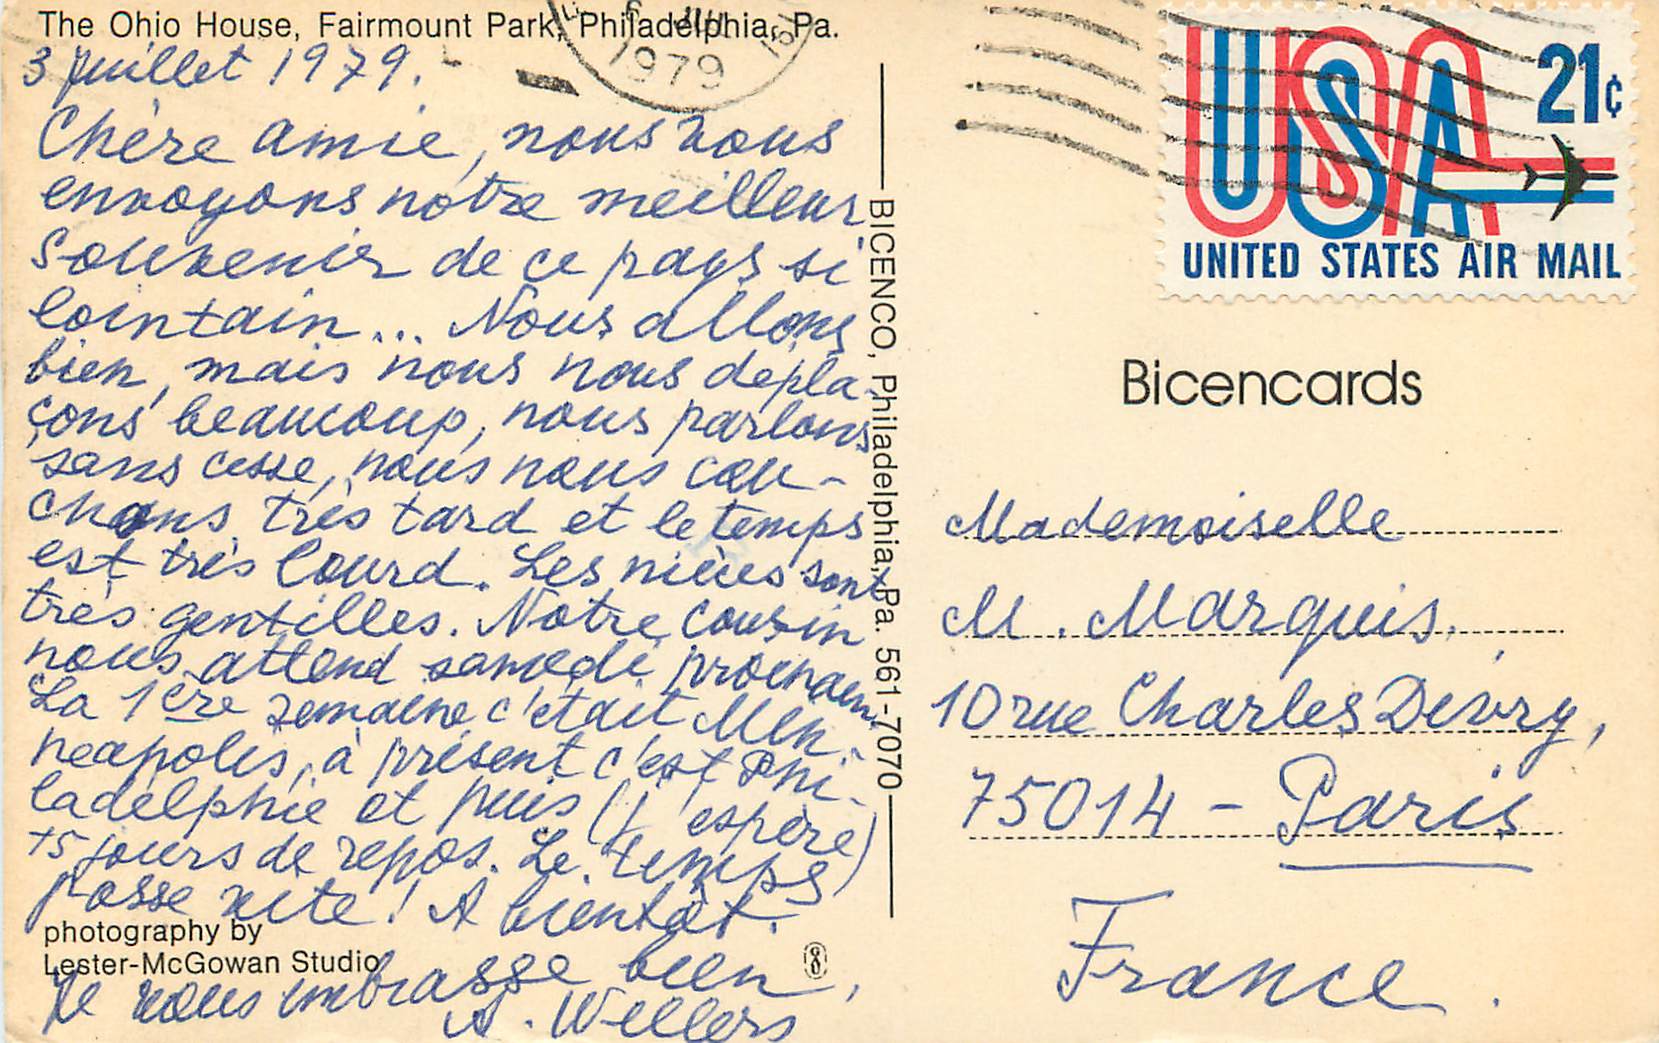 The Ohio House, Fairmount Park, Philadelphia, Pa.
3 juillet 1979.
1979
Chère amie, nous vous
envoyons notre meilleur
souvenir de ce pays si
lointain... Nous allons
bien, mais nous nous dépla-
çons beaucoup, nous parlons
sans cesse, nous nous cou-
chons très tard et le temps
est très lourd. Les nièces sont
très gentilles. Notre cousin
nous attend samedi prochain.
La 1ère semaine c'était Min-
neapolis, à présent c'est Phi-
ladelphie et puis (j'espère)
15 jours de repos. Le temps
passe vite! A bientôt.
photography by
Lester-McGowan Studio
Je vous embrasse bien,
A. Willers
BICENCO, Philadelphia, Pa. 561-7070
USA 21¢
UNITED STATES AIR MAIL
Bicencards
Mademoiselle
M. Marquis,
10 rue Charles Divry,
75014 - Paris
France.